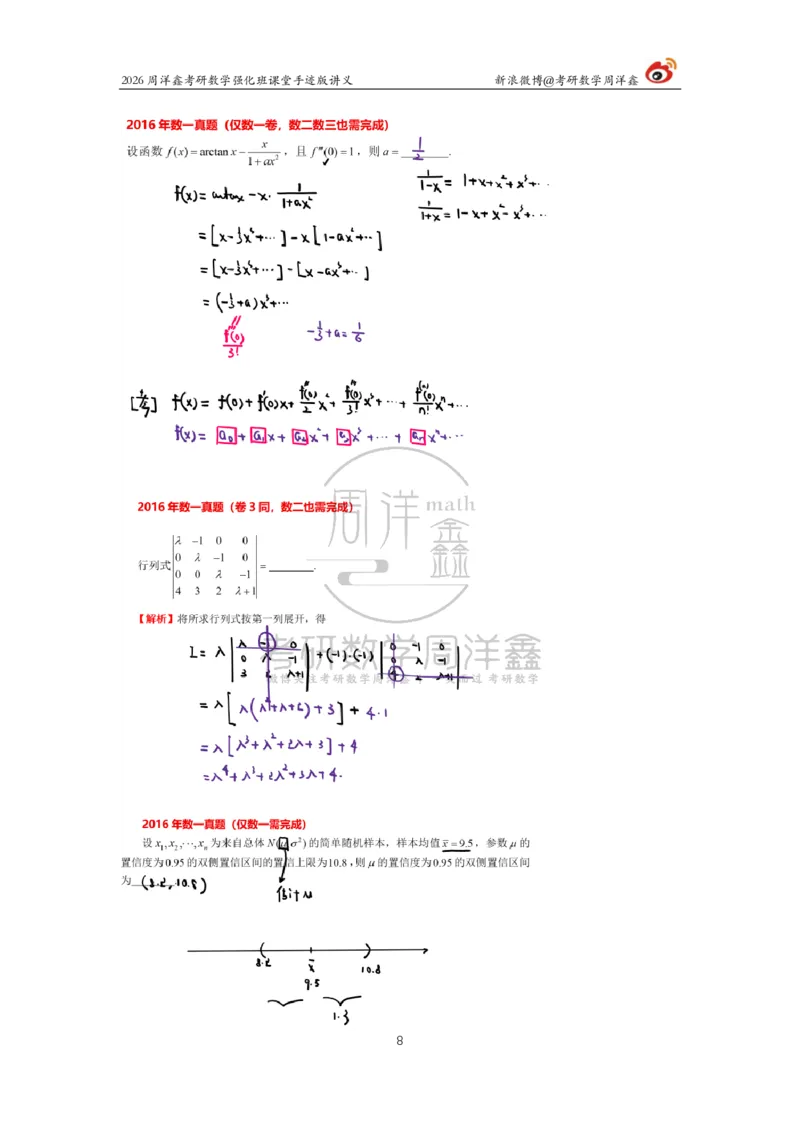 2026 周洋鑫考研数学强化班课堂手迹版讲义 新浪微博@考研数学周洋鑫
2016 年数一真题（仅数一卷，数二数三也需完成）
设函数 f(x)=arctan x − x/(1+ax²) ，且 f‴(0)=1，则 a = 1/2 .
f(x)= arctanx − x· 1/(1+ax²)
1/(1−x) = 1+x+x²+x³+···
1/(1+x) = 1−x+x²−x³+···
=[x−⅓x³+···]−x[1−ax²+··]
=[x−⅓x³+···]−[x−ax³+··]
= (−⅓+a)x³+···
f‴(0)/3!
−1/3+a= 1/6
f(x)= f(0)+f′(0)x+ f″(0)/2 x²+ f‴(0)/3! x³+ ··· + f⁽ⁿ⁾(0)/n! xⁿ+···
f(x)= a₀+a₁x+a₂x²+a₃x³+···+aₙxⁿ+···
周洋鑫 math
2016 年数一真题（卷 3 同，数二也需完成）
行列式
| λ −1 0 0 |
| 0 λ −1 0 |
| 0 0 λ −1 |
| 4 3 2 λ+1 |
= ______.
【解析】将所求行列式按第一列展开，得
考研数学周洋鑫
I = λ | λ −1 0 | +(−1)·(−1) | 0 −1 0 |
| 0 λ −1 | | 0 λ −1 |
| 3 2 λ+1 | | 4 2 λ+1 |
= λ[λ(λ²+λ+2)+3] + 4·1
= λ[λ³+λ²+2λ+3]+4
=λ⁴+λ³+2λ²+3λ+4.
2016 年数一真题（仅数一需完成）
设 x₁,x₂,···,xₙ 为来自总体 N(μ,σ²) 的简单随机样本，样本均值 x̄=9.5，参数 μ 的
置信度为0.95 的双侧置信区间的置信上限为10.8，则 μ 的置信度为0.95 的双侧置信区间
为 (8.2, 10.8)
估计μ
8.2 x̄ 10.8
9.5
1.3
8